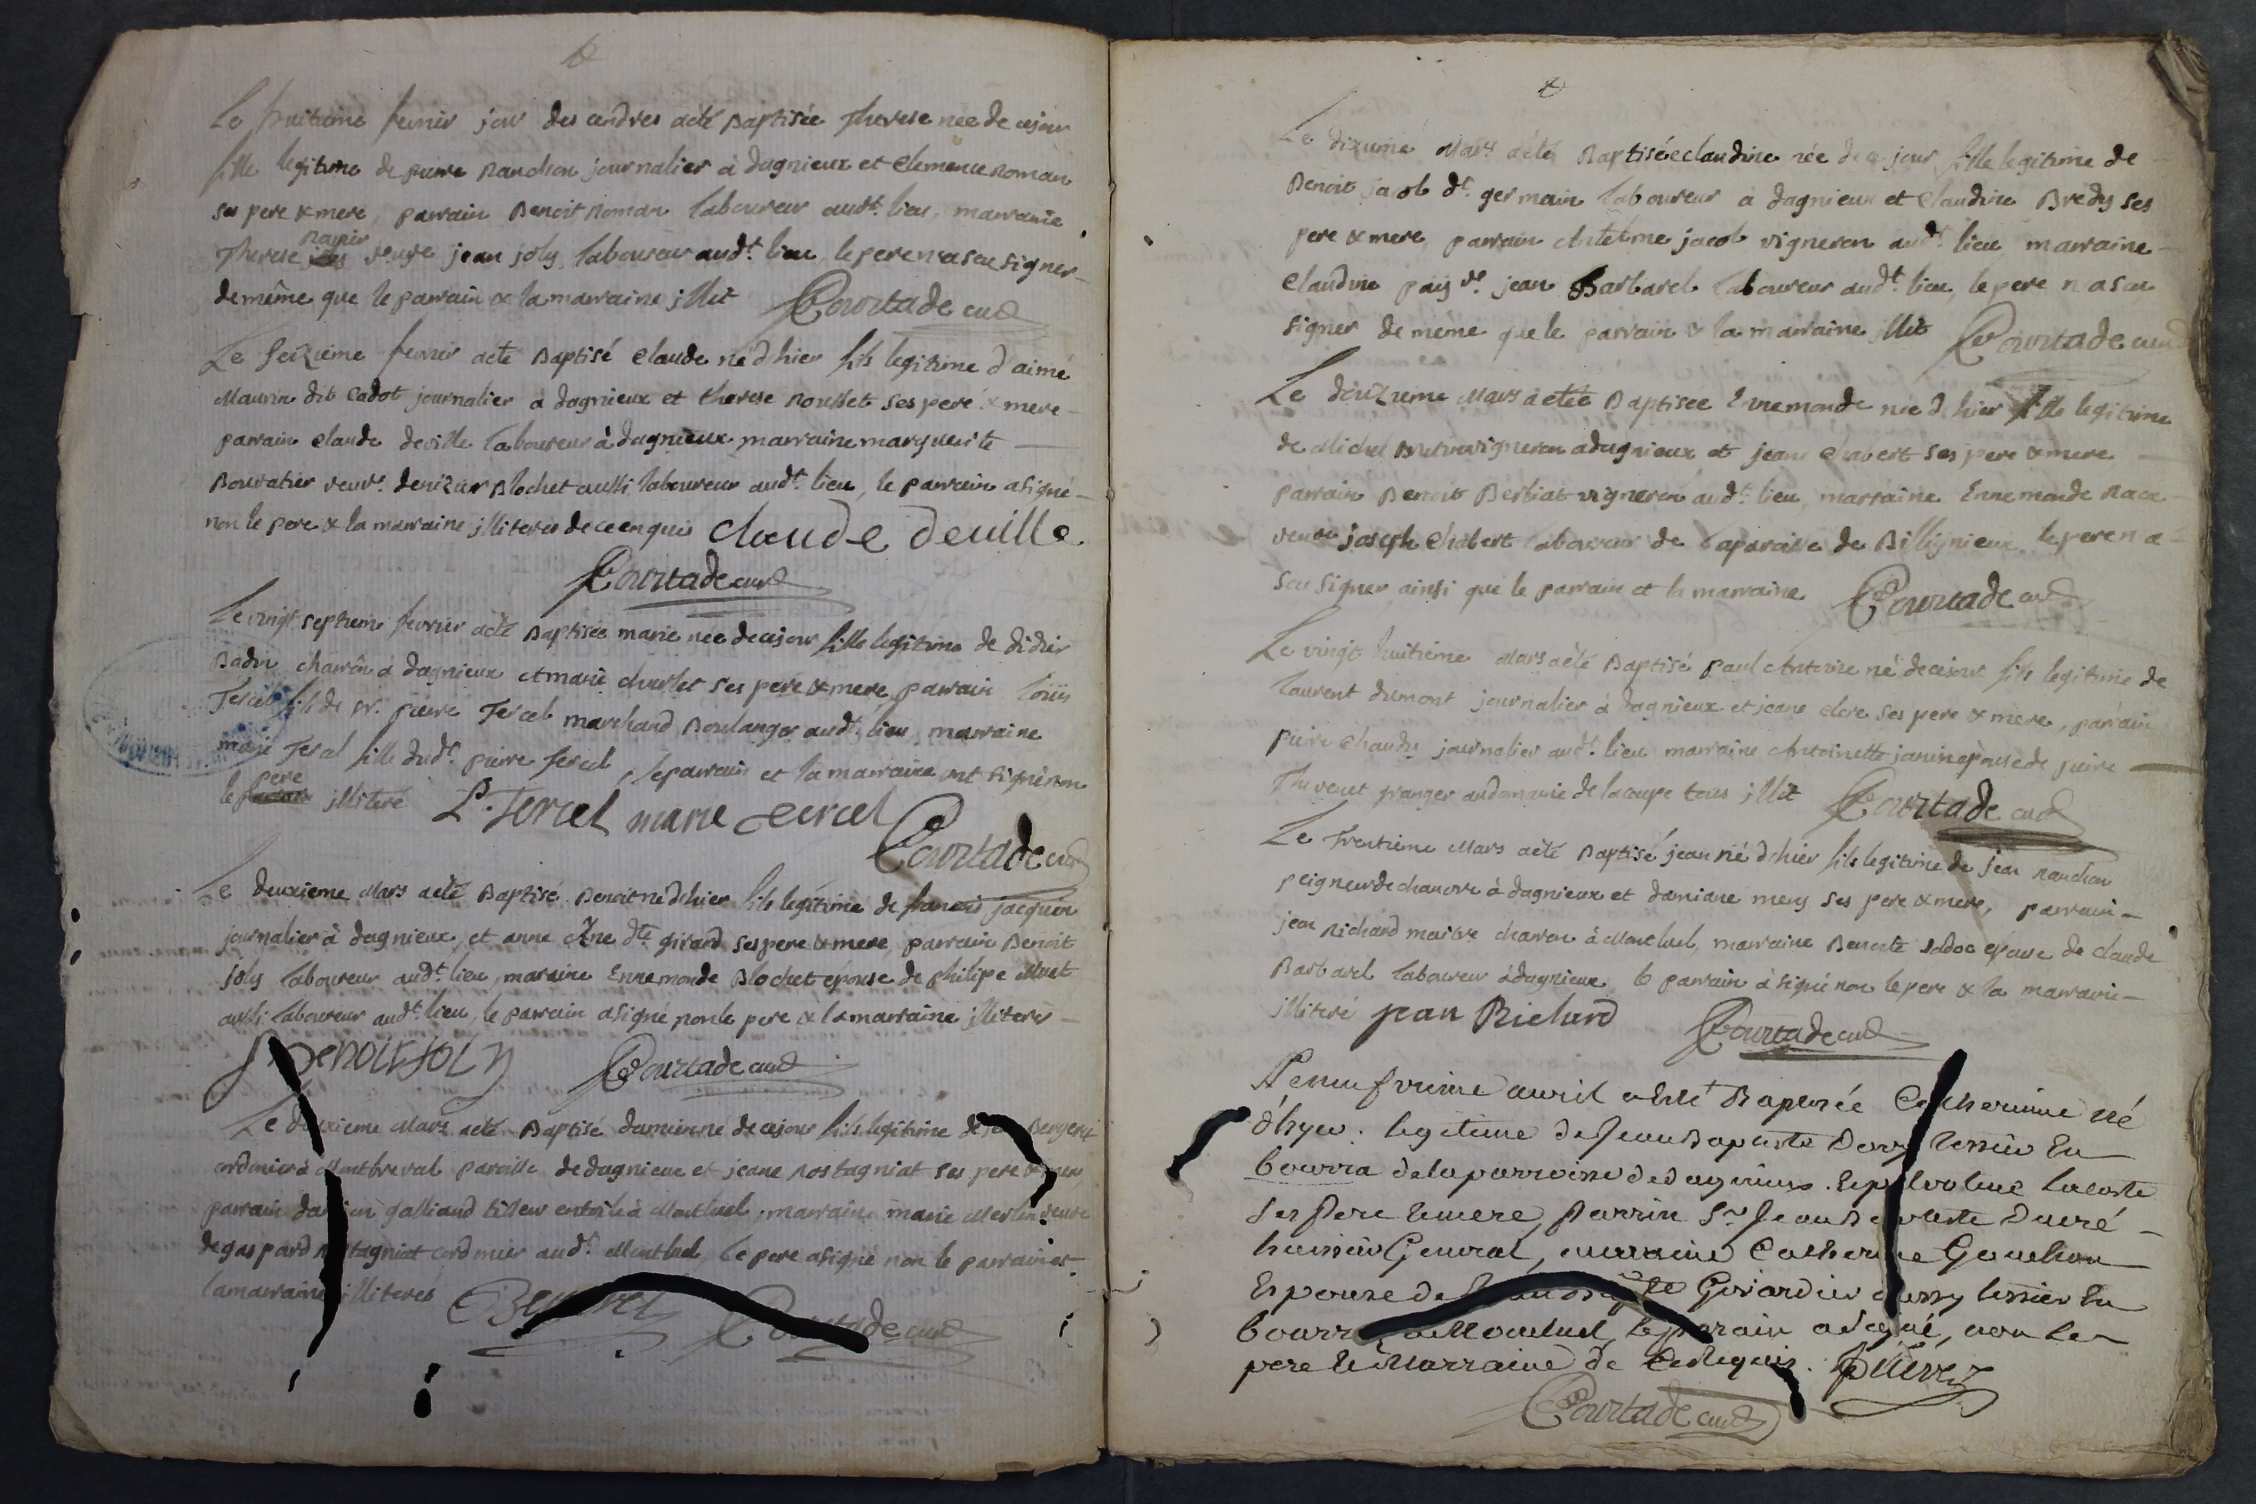 Le huitieme fevrier jour des cendres a été Baptisée Therese née de ce jour
fille legitime de pierre Nanchon journalier à dagnieux et Clemence Roman
ses pere & mere, parrain Benoit Roman laboureur audt. lieu, marraine
Therese veuve jean joly, laboureur audt. lieu, le pere n'a scu signer
de même que le parrain & la marraine illit Courtade curé
Le seizieme fevrier a été Baptisé Claude né d'hier fils legitime d'aimé
Maurin dit Cadot journalier à dagnieux et therese Rousset ses pere & mere
parrain Claude deville laboureur à dagnieux, marraine marguerite
Bouvatier veuve. denizar Blochet aussi laboureur audt. lieu, le parrain a signé
non le pere & la marraine illiterés de ce enquis Claude deville
Courtade curé
Le vingt septieme fevrier a été Baptisée marie née de ce jour fille legitime de didier
Badin charron à dagnieux et marie charlet ses pere & mere, parrain Louis
Tercel fils de Sr. pierre Tercel marchand Boulanger audt. lieu, marraine
marie Tercel fille dudt. pierre Tercel, le parrain et la marraine ont signé non
le pere illiteré L. Tercel marie Tercel
Courtade curé
Le deuxieme Mars a été Baptisé Benoit né d'hier fils legitime de francois jacquin
journalier à dagnieux, et anne dte girard ses pere & mere, parrain Benoit
joly laboureur audt. lieu, maraine Ennemonde Blochet epouse de philipe
aussi laboureur audt. lieu, le parrain a signé non le pere & la marraine illiterés
Benoit joly Courtade curé
Le deuxieme Mars a été Baptisé damien né de ce jour fils legitime de
cordonnier à Montbreval paroisse de dagnieux et jeane Rostagniat ses pere & mere
parrain damien galliand tisseur en toile à Montluel, marraine marie Merlin veuve
de gaspard Rostagniat cordonnier audt. Montluel, le pere a signé non le parrain et
la marraine illiterés Courtade curé
Le dixieme Mars a été Baptisée claudine née de ce jour fille legitime de
Benoit jacob dt. germain laboureur à dagnieux et Claudine Bredy ses
pere & mere, parrain Antelme jacob vigneron audt. lieu, marraine
Claudine pay ve. jean Barbarel laboureur audt. lieu, le pere n'a scu
signer de même que le parrain & la marraine illit Courtade curé
Le Mars a été Baptisée Ennemonde née d'hier fille legitime
de Michel vigneron à dagnieux et jeane Chavert ses pere & mere
parrain Benoit Berliat vigneron audt. lieu, marraine Ennemonde
veuve joseph Chabert laboureur de la paroisse de Billignieux, le pere n'a
scu signer ainsi que le parrain et la marraine Courtade curé
Le vingt huitieme Mars a été Baptisé paul Antoine né de ce jour fils legitime de
laurent dumont journalier à dagnieux et jeane clere ses pere & mere, parrain
pierre Chaudy journalier audt. lieu marraine Antoinette janin epouse de pierre
Thevenet granger au domaine de la coupe tous illit Courtade curé
Le Trentieme Mars a été Baptisé jean né d'hier fils legitime de jean Nanchon
peigneur de chanvre à dagnieux et damiane mery ses pere & mere, parrain
jean Richard maitre charron à Montluel, marraine Benoite Jadoc epouse de Claude
Barbarel laboureur à dagnieux, le parrain a signé non le pere & la marraine
illiteré jean Richard Courtade curé
Le neufvieme avril a été Baptisée Catherinne né
d'hyer. legitime de Jean Baptiste tessier En
bourra de la parroisse de dagnieux. lacoste
ses Pere & mere, Parrin Sr. Jean Baptiste Ducré
huissier General, marraine Catherine Gonchon
Espouse de Girardier aussy tessier En
bourra de Montluel, le parrain a signé, non le
pere & Marraine de ce requis. Ducrez
Courtade curé